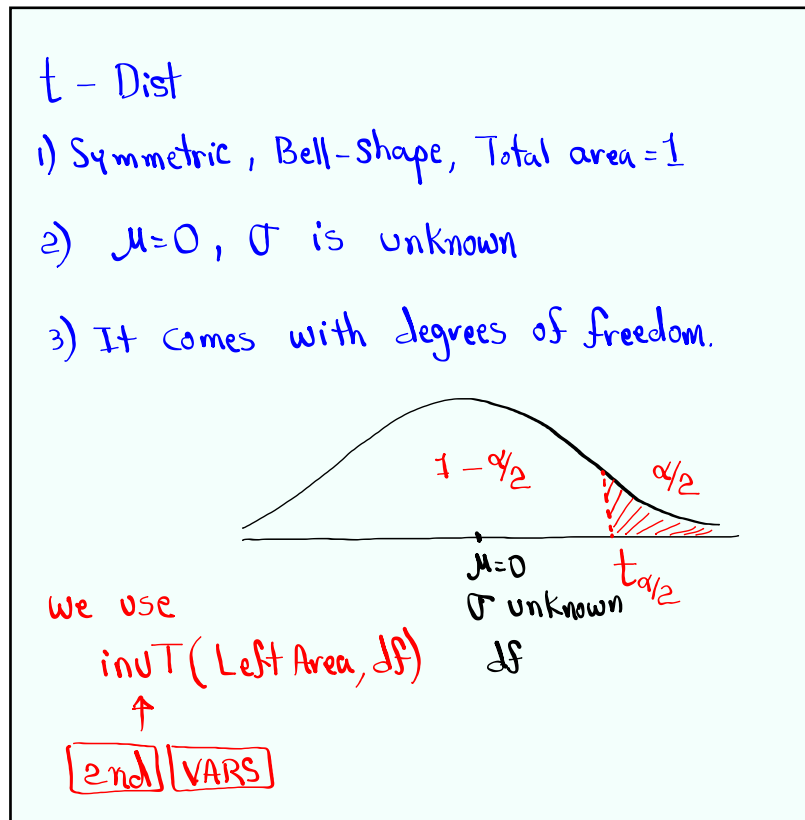 t - Dist
1) Symmetric, Bell-Shape, Total area = 1
2) μ=0, σ is unknown
3) It comes with degrees of freedom.
1 - α/2
α/2
μ=0
t α/2
σ unknown
df
we use
invT(Left Area, df)
↑
2nd VARS